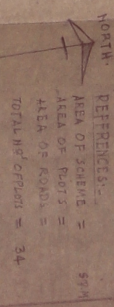 NORTH.
REFFRENCES:-
AREA OF SCHEME =
AREA OF PLOTS =
AREA OF ROADS =
TOTAL NO' OF PLOTS = 34